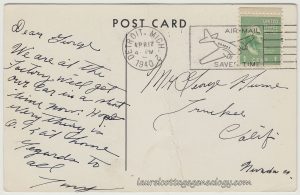 POST CARD
Dear George
We are at the
Factory. will get
our Car in a short
time now. Hope
everything is
O.K. at home
Regards to
all
DETROIT, MICH.
APR 17
4 - PM
1940
AIR MAIL
SAVES TIME
Mr. George
Truckee
Calif
Nevada Co.
laurelcottagegenealogy.com